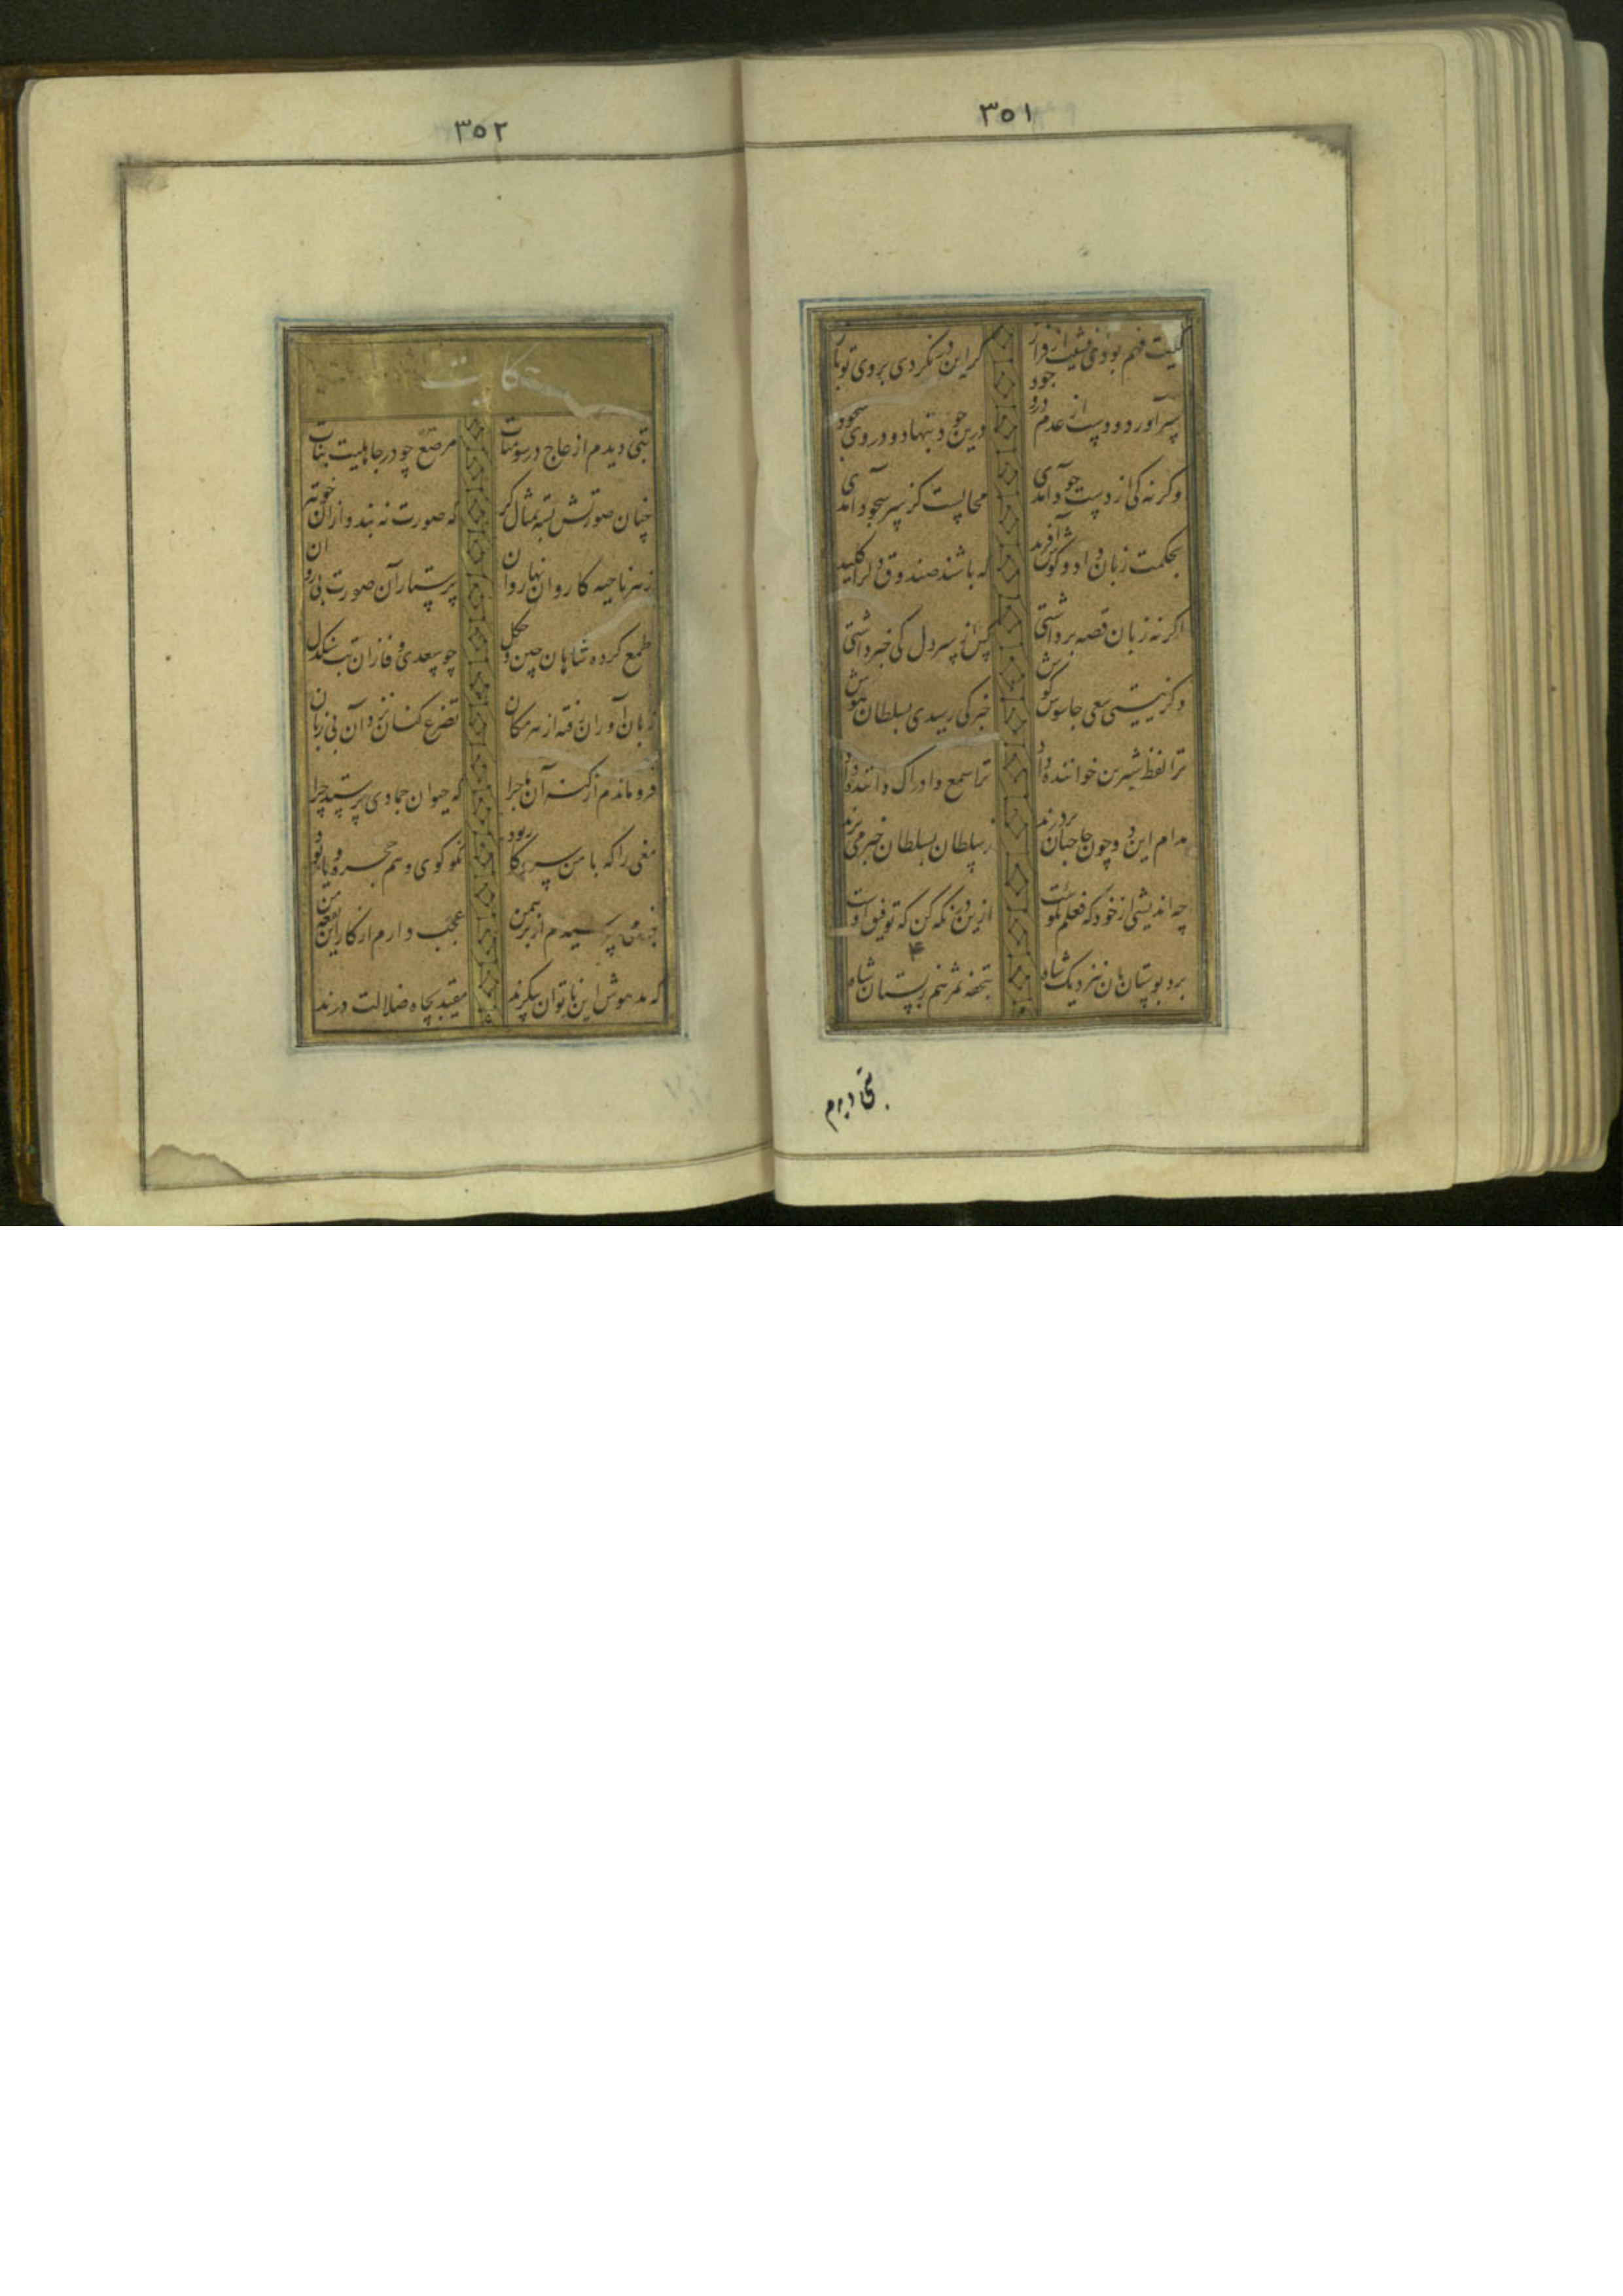 ٣٥١
کیت فهم بودی نشیب از فراز گر این در نکردی بروی تو باز
سر آورد و دست از عدم در وجود درین جود بنهاد و در وی سجود
وگرنه کی از دست جود آمدی محالست کز سر سجود آمدی
بحکمت زبان داد و گوش آفرید که باشند صندوق دل را کلید
اگر نه زبان قصه برداشتی کس از سر دل کی خبر داشتی
وگر نیستی سعی جاسوس گوش خبر کی رسیدی بسلطان هوش
ترا لفظ شیرین خواننده داد ترا سمع و ادراک داننده داد
مدام این دو چون حاجبان بر درند ز سلطان بسلطان خبر می برند
چه اندیشی از خود که فعلم نکوست ازین در نگه کن که توفیق اوست
برد بوستان بان نزدیک شاه بتحفه ثمر هم ز بستان شاه
بتی دیدم
٣٥٢
حکایت
بتی دیدم از عاج در سومنات مرصع چو در جاهلیت منات
چنان صورتش بسته تمثال گر که صورت نه بندد از آن خوبتر
ز هر ناحیه کاروانها روان پرستار آن صورت بی روان
طمع کرده شاهان چین و چگل چو سعدی وفا زان بت سنگدل
زبان آوران رفته از هر مکان تضرع کنان نزد آن بی زبان
فرو ماندم از کشف آن ماجرا که حیوان جمادی پرستد چرا
مغی را که با من سر و کار بود نکو گوی و هم حجره و یار بود
بنرمی بپرسیدم از برهمن عجب دارم از کار این بقعه من
که مدهوش این ناتوان پیکرند مقید بچاه ضلالت درند